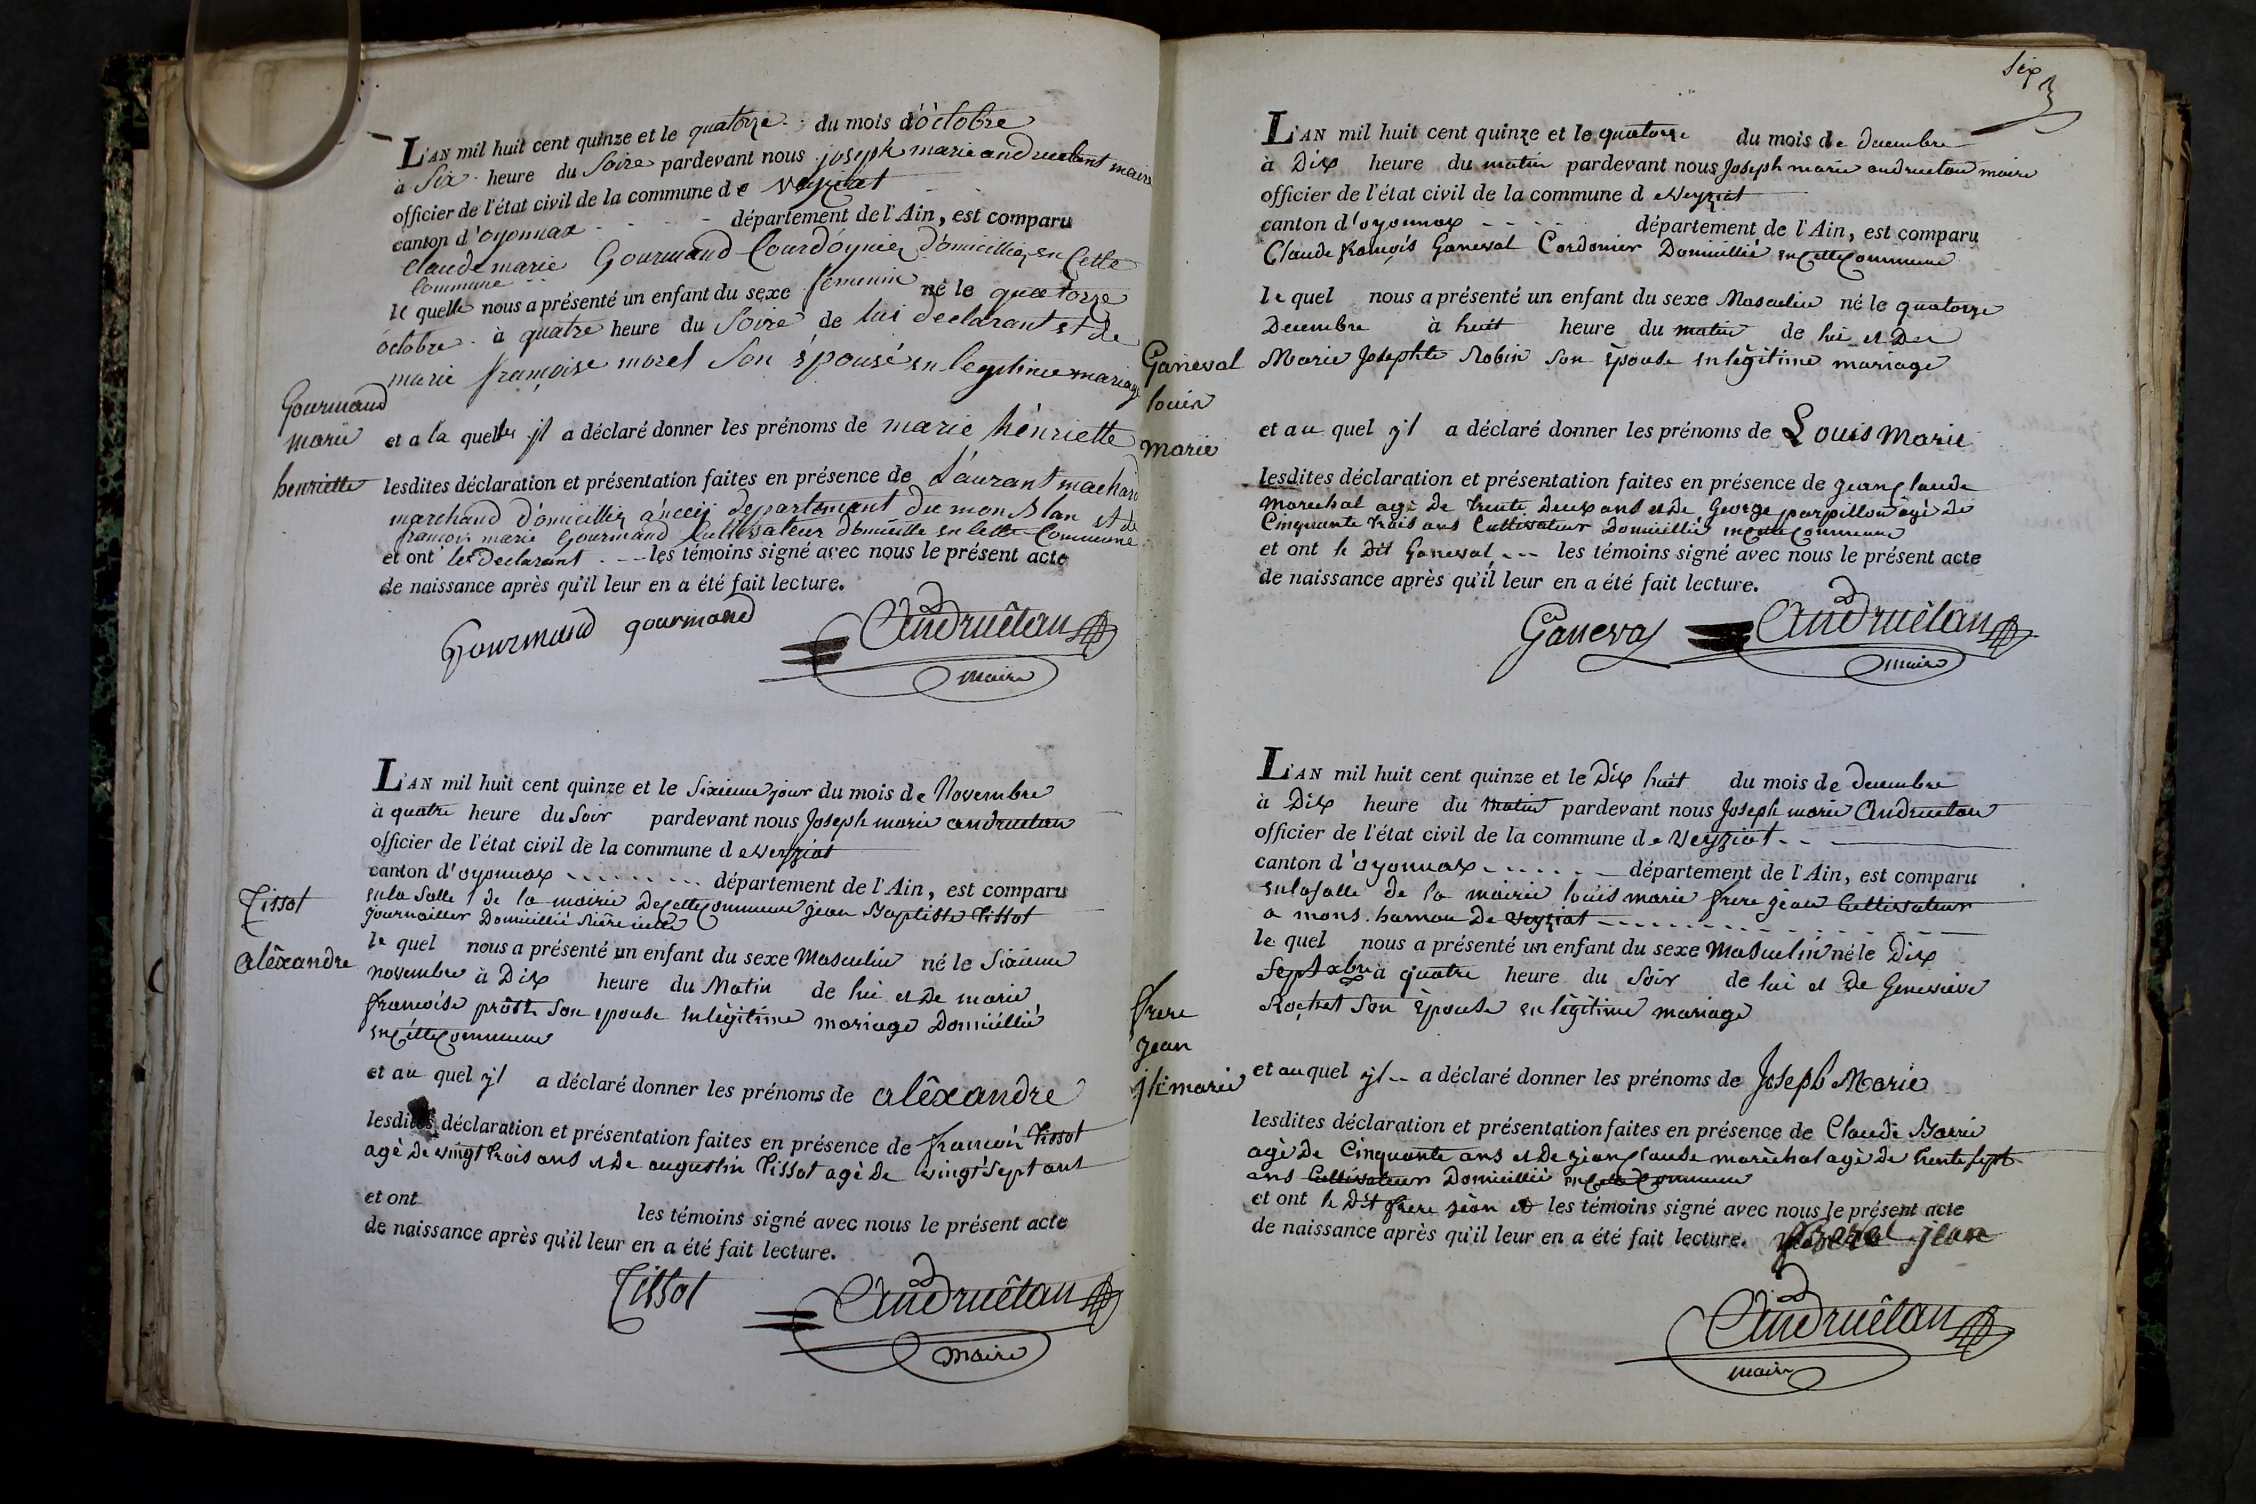 L'AN mil huit cent quinze et le quatorze du mois d'octobre
à Six heure du Soire pardevant nous joseph marie andruetant maire
officier de l'état civil de la commune de veyziat
canton d'oyonnax département de l'Ain, est comparu
claude marie Gourmand Courdoynier domicillier en Cette
Commune
le quelle nous a présenté un enfant du sexe feminin né le quatorze
octobre à quatre heure du Soire de lui declarant et de
marie françoise morel Son épousé en legitime mariage
Gourmand
marie
henriette
et a la quelle jl a déclaré donner les prénoms de marie hênriette
lesdites déclaration et présentation faites en présence de Laurant machard
marchand d'omicillier département du mon Blan et de
francois marie Gourmand Cultivateur domicille en Cette Commune
et ont les Declarant les témoins signé avec nous le présent acte
de naissance après qu'il leur en a été fait lecture.
Gourmand gourmand Andruêtan
maire
L'AN mil huit cent quinze et le Sixieme jour du mois de Novembre
à quatre heure du Soir pardevant nous Joseph marie andruetan
officier de l'état civil de la commune de veyziat
canton d'oyonnax département de l'Ain, est comparu
en la Salle de la mairie De cette Commune jean Baptiste Tissot
journallier Domicillié
Tissot
Alêxandre
le quel nous a présenté un enfant du sexe Masculin né le Sixieme
novembre à Dix heure du Matin de lui et De marie
francoise prôst Son epouse en legitime mariage Domicillié
en Cette Commune
et au quel yl a déclaré donner les prénoms de alêxandre
lesdites déclaration et présentation faites en présence de francois Tissot
agé De vingt trois ans et De augustin Tissot agé De vingt Sept ans
et ont les témoins signé avec nous le présent acte
de naissance après qu'il leur en a été fait lecture.
Tissot Andruêtan
maire
Six
L'AN mil huit cent quinze et le quatorze du mois de decembre
à Dix heure du matin pardevant nous Joseph marie andruetan maire
officier de l'état civil de la commune de Veyziat
canton d'oyonnax département de l'Ain, est comparu
Claude françois Ganeval Cordonier Domicillié en Cette Commune
le quel nous a présenté un enfant du sexe Masculin né le quatorze
Decembre à huit heure du matin de lui et De
Marie Josephte Robin Son Epouse en légitime mariage
Ganeval
louis
Marie
et au quel yl a déclaré donner les prénoms de Louis Marie
lesdites déclaration et présentation faites en présence de jean Claude
Marechal agé De trente Deux ans et De George parpillon agé De
Cinquante trois ans Cultivateur Domicillié en Cette Commune
et ont le Dit Ganeval les témoins signé avec nous le présent acte
de naissance après qu'il leur en a été fait lecture.
Ganeval Andruêtan
maire
L'AN mil huit cent quinze et le Dix huit du mois de decembre
à Dix heure du Matin pardevant nous Joseph marie Andruetan
officier de l'état civil de la commune de Veyziat
canton d'oyonnax département de l'Ain, est comparu
en la Salle de la mairie louis marie frere jean Cultivateur
a mons. hamau De veyziat
le quel nous a présenté un enfant du sexe Masculin né le Dix
Sept Xbre à quatre heure du Soir de lui et De Genevieve
Rochet Son Epouse en légitime mariage
frere
jean
jh marie
et au quel yl a déclaré donner les prénoms de Joseph Marie
lesdites déclaration et présentation faites en présence de Claude
agé De Cinquante ans et De jean Claude maréchal agé de trente sept
ans Cultivateurs Domicillié en Cette Commune
et ont le Dit frere jean et les témoins signé avec nous le présent acte
de naissance après qu'il leur en a été fait lecture. jean
Andruêtan
maire